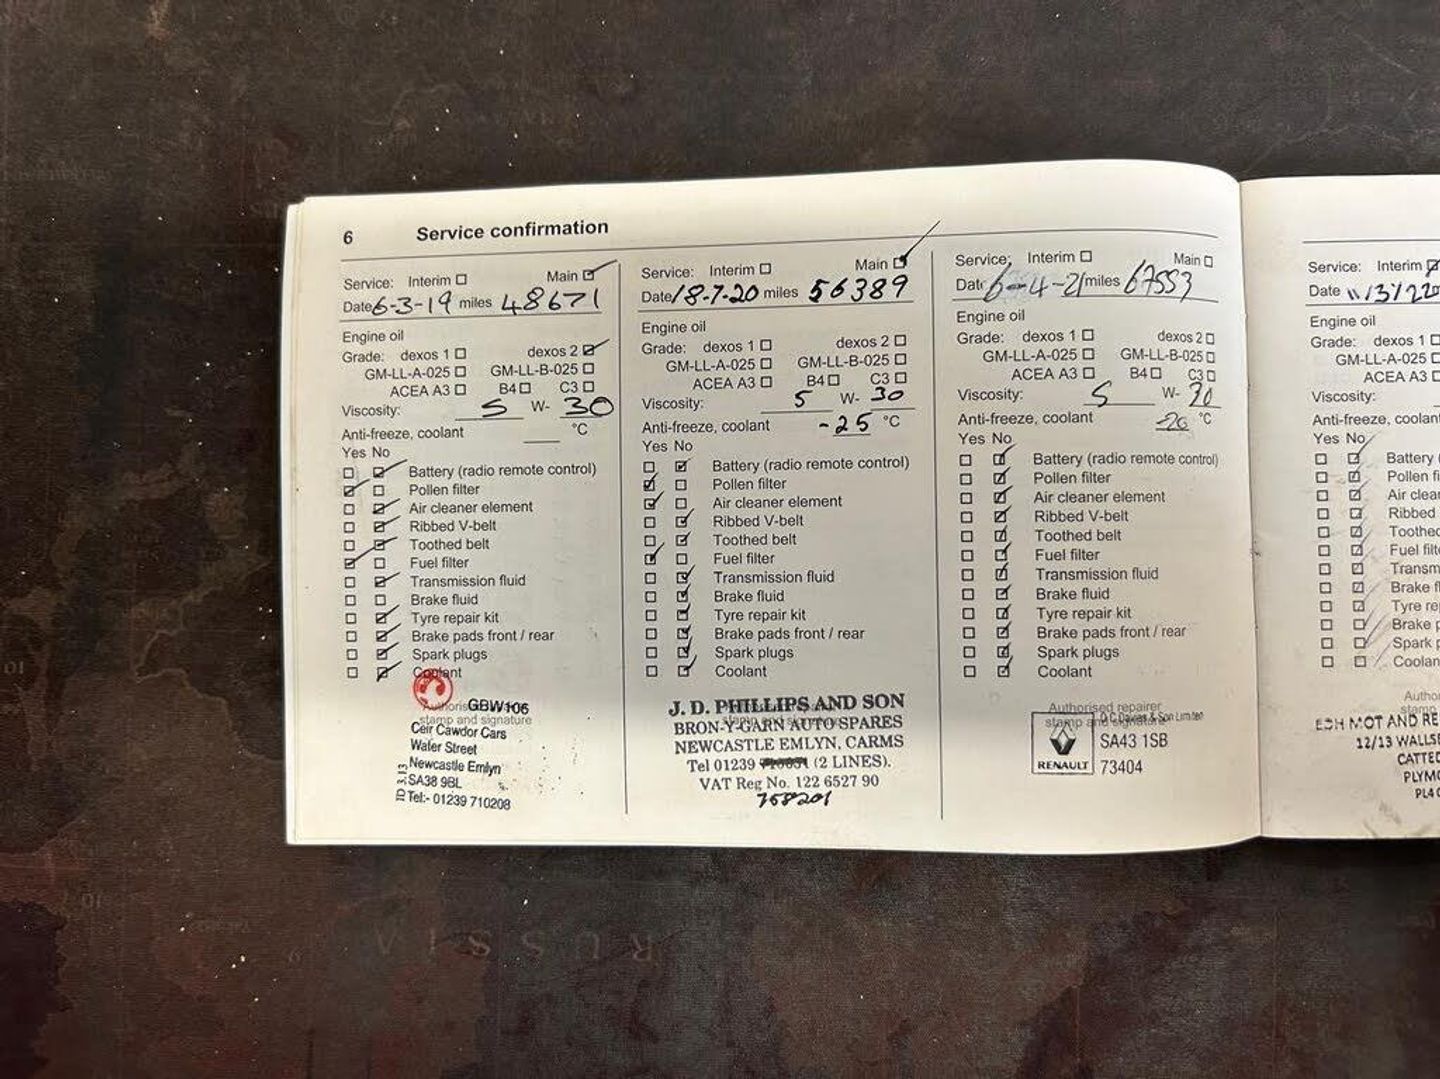 6 Service confirmation
Service: Interim ☐ Main ☑
Date 6-3-19 miles 48671
Engine oil
Grade: dexos 1 ☐ dexos 2 ☑
GM-LL-A-025 ☐ GM-LL-B-025 ☐
ACEA A3 ☐ B4 ☐ C3 ☐
Viscosity: 5 W- 30
Anti-freeze, coolant °C
Yes No
☐ ☑ Battery (radio remote control)
☑ ☐ Pollen filter
☐ ☑ Air cleaner element
☐ ☑ Ribbed V-belt
☐ ☑ Toothed belt
☑ ☐ Fuel filter
☐ ☑ Transmission fluid
☐ ☐ Brake fluid
☐ ☑ Tyre repair kit
☐ ☑ Brake pads front / rear
☐ ☑ Spark plugs
☐ ☑ Coolant
Authorised GBW106
stamp and signature
Ceir Cawdor Cars
Water Street
Newcastle Emlyn
SA38 9BL
Tel:- 01239 710208
Service: Interim ☐ Main ☑
Date 18-7-20 miles 56389
Engine oil
Grade: dexos 1 ☐ dexos 2 ☐
GM-LL-A-025 ☐ GM-LL-B-025 ☐
ACEA A3 ☐ B4 ☐ C3 ☐
Viscosity: 5 W- 30
Anti-freeze, coolant -25 °C
Yes No
☐ ☑ Battery (radio remote control)
☑ ☐ Pollen filter
☑ ☐ Air cleaner element
☐ ☑ Ribbed V-belt
☐ ☑ Toothed belt
☑ ☐ Fuel filter
☐ ☑ Transmission fluid
☐ ☑ Brake fluid
☐ ☑ Tyre repair kit
☐ ☑ Brake pads front / rear
☐ ☑ Spark plugs
☐ ☑ Coolant
J. D. PHILLIPS AND SON
stamp and signature
BRON-Y-GARN AUTO SPARES
NEWCASTLE EMLYN, CARMS
Tel 01239 (2 LINES).
VAT Reg No. 122 6527 90
758201
Service: Interim ☐ Main ☐
Date 6-4-21 miles 67553
Engine oil
Grade: dexos 1 ☐ dexos 2 ☐
GM-LL-A-025 ☐ GM-LL-B-025 ☐
ACEA A3 ☐ B4 ☐ C3 ☐
Viscosity: 5 W- 30
Anti-freeze, coolant -20 °C
Yes No
☐ ☑ Battery (radio remote control)
☐ ☑ Pollen filter
☐ ☑ Air cleaner element
☐ ☑ Ribbed V-belt
☐ ☑ Toothed belt
☐ ☑ Fuel filter
☐ ☑ Transmission fluid
☐ ☑ Brake fluid
☐ ☑ Tyre repair kit
☐ ☑ Brake pads front / rear
☐ ☑ Spark plugs
☐ ☑ Coolant
Authorised repairer
stamp and signature
& Son Limited
SA43 1SB
RENAULT 73404
Service: Interim ☑
Date 11/3/22
Engine oil
Grade: dexos 1 ☐
GM-LL-A-025 ☐
ACEA A3 ☐
Viscosity:
Anti-freeze, coolant
Yes No
☐ ☑ Battery (
☐ ☑ Pollen fi
☐ ☑ Air clea
☐ ☑ Ribbed
☐ ☑ Toothe
☐ ☑ Fuel filt
☐ ☑ Transm
☐ ☑ Brake fl
☐ ☑ Tyre rep
☐ ☑ Brake p
☐ ☑ Spark p
☐ ☑ Coolan
Autho
stamp
MOT AND RE
12/13 WALLSE
CATTED
PLYMO
PL4 0
RUSSIA